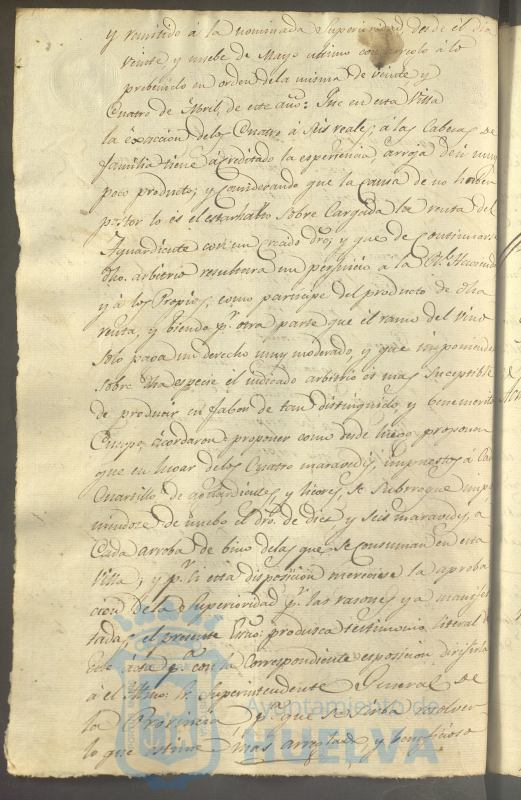 y remitido á la nominada Superioridad, desde el dia
veinte y nuebe de Mayo ultimo con arreglo á lo
prebenido en orden de la misma de veinte y
Cuatro de Abril, de este año: Que en esta Villa
la exaccion delos Cuatro á seis reales, á las Cabezas de
familia tiene acreditado la esperiencia, arroja de si muy
poco producto; y Considerando que la Causa de no haber
postor lo es el estar harto Sobre Cargada la renta del
Aguardiente con un Crecido dro; y que de Continuar
dho. arbitrio resultara un perjuicio a la Rl. Hacienda
y á los Propios, como participe del producto de dha
renta, y biendo pr. otra parte que el ramo del Vino
Solo paga un derecho muy moderado, y que imponiendo
Sobre dha especie el indicado arbitrio és mas Suceptible
de producir en fabor de tan distinguido y benemerito
Cuerpo acordaron proponer como desde luego proponen
que en lugar delos Cuatro maravedis, impuestos á Cada
Cuartillo de aguardientes, y licores, Se Subrrogue impo
niendose de nuebo el dro. de diez y seis maravedis, a
Cada arroba de bino delas que Se Consuman en esta
Villa; y pr. si esta disposision merciese la aproba
cion de la Superioridad pr. las rasones ya manifes
tadas, el presente Srio: produzca testimonio literal de
este acta pa. con la Correspondiente esposicion dirijirla
á el Ilmo. Sr. Superintendente General de
la Provincia, pa. que Se Sirba resolver
lo que estime mas arreglado y beneficioso
Ayuntamiento de
HUELVA